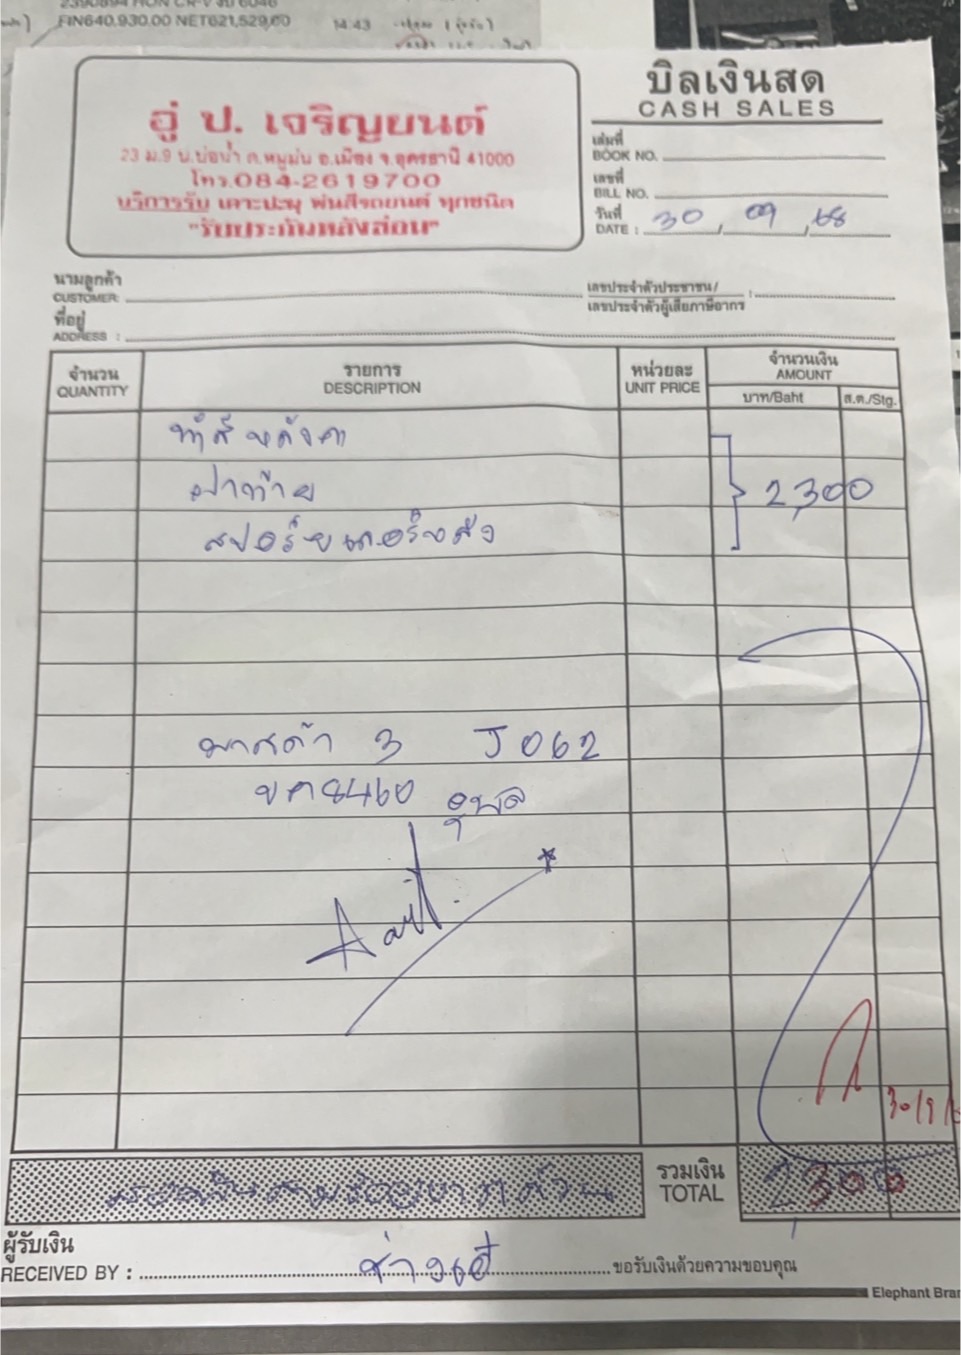 FIN640,930.00 NET621,529.00
14:43
บิลเงินสด
CASH SALES
อู่ ป. เจริญยนต์
23 ม.9 บ.บ่อน้ำ ต.หมูม่น อ.เมือง จ.อุดรธานี 41000
โทร.084-2619700
บริการรับ เคาะปะผุ พ่นสีรถยนต์ ทุกชนิด
"รับประกันหลังซ่อม"
เล่มที่
BOOK NO.
เลขที่
BILL NO.
วันที่
DATE : 30 / 09 / 68
นามลูกค้า
CUSTOMER:
เลขประจำตัวประชาชน/
เลขประจำตัวผู้เสียภาษีอากร :
ที่อยู่
ADDRESS :
จำนวน
QUANTITY
รายการ
DESCRIPTION
หน่วยละ
UNIT PRICE
จำนวนเงิน
AMOUNT
บาท/Baht
ส.ต./Stg.
ทำสีหลังคา
ฝาท้าย 2,300
สปอร์ยเลอร์หลัง
มาสด้า 3 J062
ขค8460 อุบล
30/9/
สองพันสามร้อยบาทถ้วน
รวมเงิน
TOTAL
2,300
ผู้รับเงิน
RECEIVED BY : ช่าง
ขอรับเงินด้วยความขอบคุณ
Elephant Bran